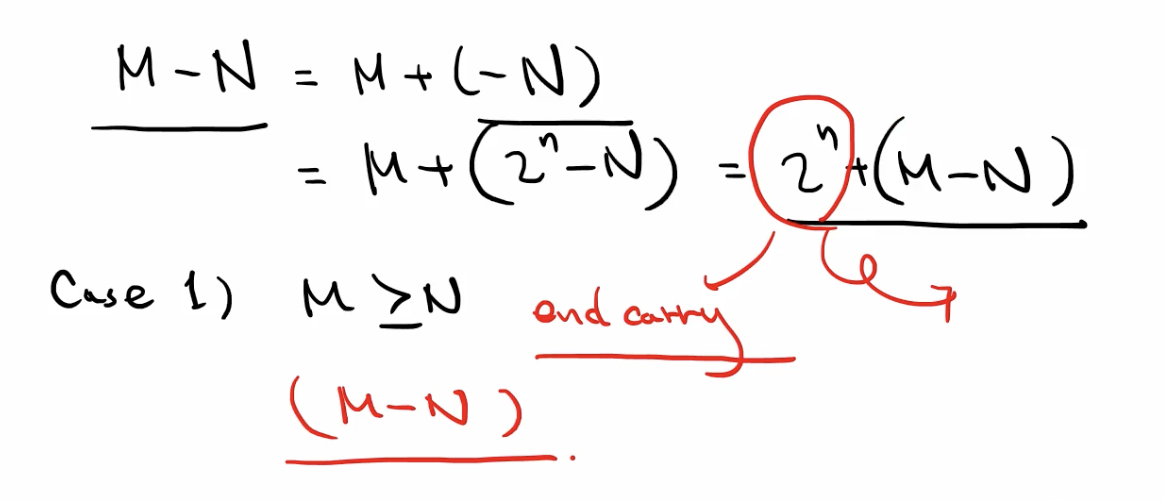 M - N = M + (-N)
= M + (2ⁿ - N) = 2ⁿ + (M - N)
Case 1) M ≥ N end carry
(M - N).